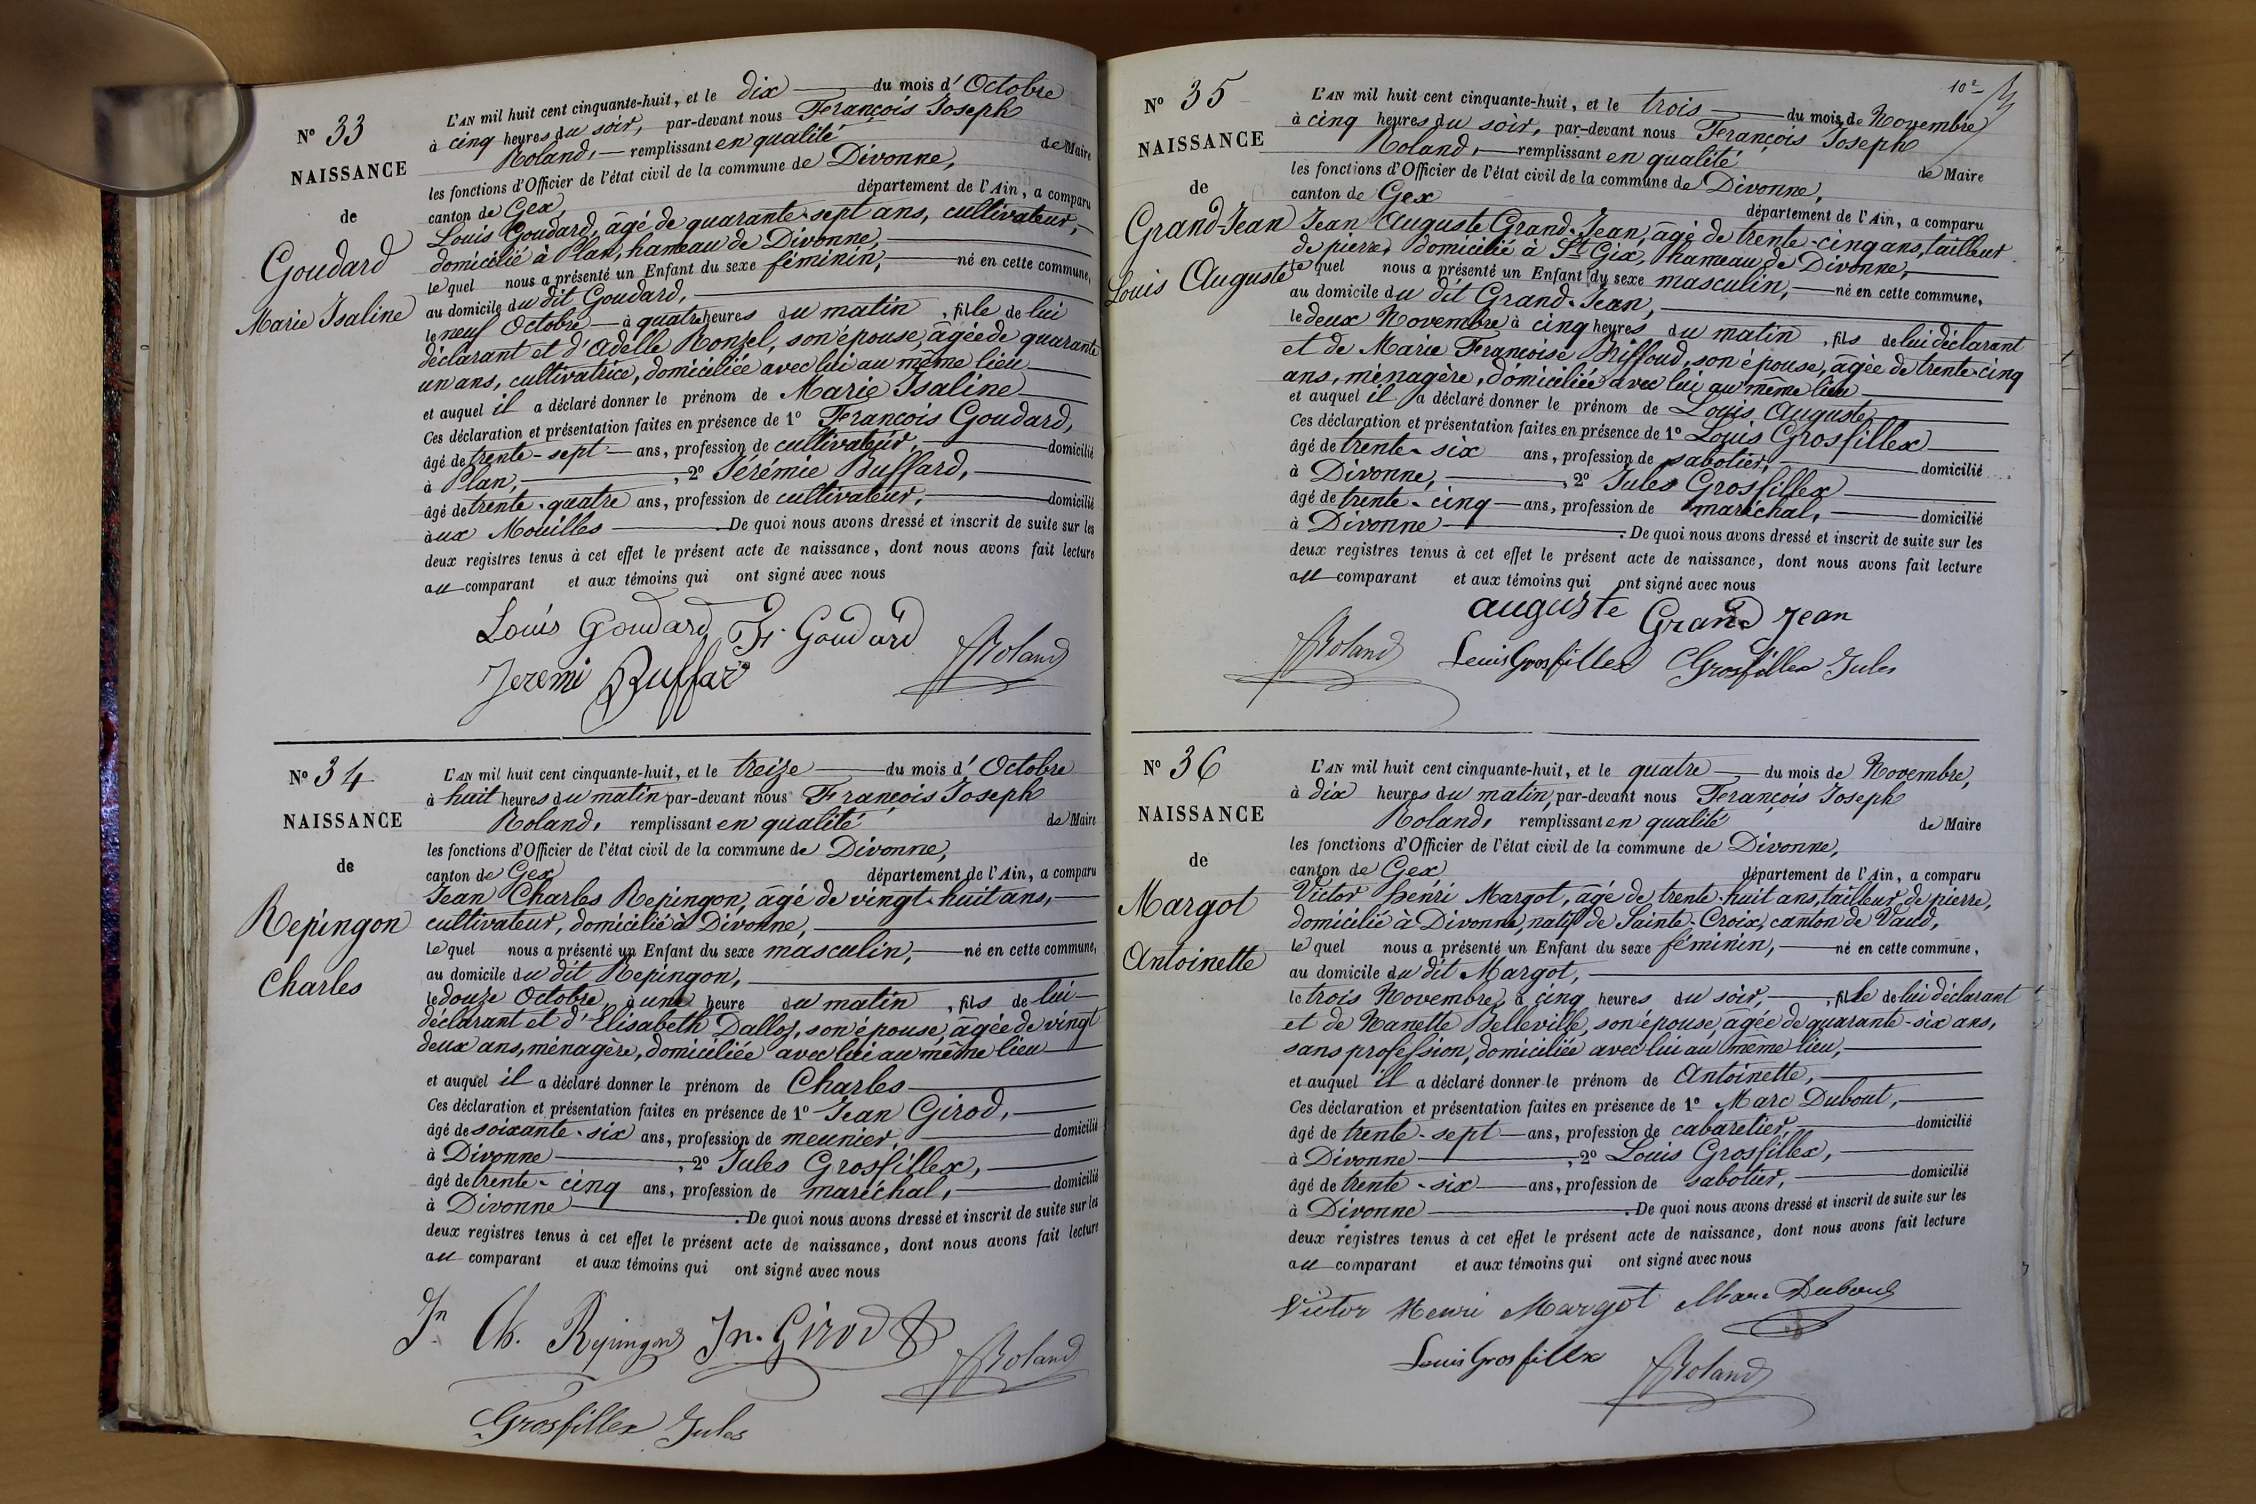 N° 33
NAISSANCE
de
Goudard
Marie Isaline
L'AN mil huit cent cinquante-huit, et le dix du mois d'Octobre
à cinq heures du soir, par-devant nous François Joseph
Roland, remplissant en qualité de Maire
les fonctions d'Officier de l'état civil de la commune de Divonne,
canton de Gex département de l'Ain, a comparu
Louis Goudard, âgé de quarante-sept ans, cultivateur,
domicilié à Plan, hameau de Divonne,
lequel nous a présenté un Enfant du sexe féminin, né en cette commune,
au domicile du dit Goudard,
le neuf Octobre à quatre heures du matin, fille de lui
déclarant et d'Adelle Ronzel, son épouse, âgée de quarante
un ans, cultivatrice, domiciliée avec lui au même lieu
et auquel il a déclaré donner le prénom de Marie Isaline
Ces déclaration et présentation faites en présence de 1° François Goudard,
âgé de trente-sept ans, profession de cultivateur, domicilié
à Plan, , 2° Jérémie Buffard,
âgé de trente-quatre ans, profession de cultivateur, domicilié
aux Mouilles . De quoi nous avons dressé et inscrit de suite sur les
deux registres tenus à cet effet le présent acte de naissance, dont nous avons fait lecture
au comparant et aux témoins qui ont signé avec nous
Louis Goudard Fs. Goudard
Jeremi Buffard FRoland
N° 34
NAISSANCE
de
Repingon
Charles
L'AN mil huit cent cinquante-huit, et le treize du mois d'Octobre
à huit heures du matin par-devant nous François Joseph
Roland, remplissant en qualité de Maire
les fonctions d'Officier de l'état civil de la commune de Divonne,
canton de Gex département de l'Ain, a comparu
Jean Charles Repingon, âgé de vingt-huit ans,
cultivateur, domicilié à Divonne,
lequel nous a présenté un Enfant du sexe masculin, né en cette commune,
au domicile du dit Repingon,
le douze Octobre, à une heure du matin, fils de lui
déclarant et d'Elisabeth Dalloz, son épouse, âgée de vingt
deux ans, ménagère, domiciliée avec lui au même lieu
et auquel il a déclaré donner le prénom de Charles
Ces déclaration et présentation faites en présence de 1° Jean Girod,
âgé de soixante-six ans, profession de meunier, domicilié
à Divonne , 2° Jules Grosfillex,
âgé de trente-cinq ans, profession de maréchal, domicilié
à Divonne . De quoi nous avons dressé et inscrit de suite sur les
deux registres tenus à cet effet le présent acte de naissance, dont nous avons fait lecture
au comparant et aux témoins qui ont signé avec nous
Jn Ch. Repingon Jn. Girod FRoland
Grosfillex Jules
N° 35
NAISSANCE
de
Grand-Jean
Louis Auguste
L'AN mil huit cent cinquante-huit, et le trois du mois de Novembre
à cinq heures du soir, par-devant nous François Joseph
Roland, remplissant en qualité de Maire
les fonctions d'Officier de l'état civil de la commune de Divonne,
canton de Gex département de l'Ain, a comparu
Jean Auguste Grand-Jean, âgé de trente-cinq ans, tailleur
de pierre, domicilié à St Gix, hameau de Divonne,
lequel nous a présenté un Enfant du sexe masculin, né en cette commune,
au domicile du dit Grand-Jean,
le deux Novembre à cinq heures du matin, fils de lui déclarant
et de Marie Françoise Briffoud, son épouse, âgée de trente-cinq
ans, ménagère, domiciliée avec lui au même lieu
et auquel il a déclaré donner le prénom de Louis Auguste
Ces déclaration et présentation faites en présence de 1° Louis Grosfillex
âgé de trente-six ans, profession de sabotier, domicilié
à Divonne, , 2° Jules Grosfillex
âgé de trente-cinq ans, profession de maréchal, domicilié
à Divonne . De quoi nous avons dressé et inscrit de suite sur les
deux registres tenus à cet effet le présent acte de naissance, dont nous avons fait lecture
au comparant et aux témoins qui ont signé avec nous
auguste Grand Jean
FRoland Louis Grosfillex Grosfillex Jules
N° 36
NAISSANCE
de
Margot
Antoinette
L'AN mil huit cent cinquante-huit, et le quatre du mois de Novembre,
à dix heures du matin, par-devant nous François Joseph
Roland, remplissant en qualité de Maire
les fonctions d'Officier de l'état civil de la commune de Divonne,
canton de Gex département de l'Ain, a comparu
Victor henri Margot, âgé de trente-huit ans, tailleur de pierre,
domicilié à Divonne, natif de Sainte-Croix, canton de Vaud,
lequel nous a présenté un Enfant du sexe féminin, né en cette commune,
au domicile du dit Margot,
le trois Novembre, à cinq heures du soir, , fille de lui déclarant
et de Nanette Belleville, son épouse, âgée de quarante-six ans,
sans profession, domiciliée avec lui au même lieu,
et auquel il a déclaré donner le prénom de Antoinette,
Ces déclaration et présentation faites en présence de 1° Marc Dubout,
âgé de trente-sept ans, profession de cabaretier, domicilié
à Divonne , 2° Louis Grosfillex,
âgé de trente-six ans, profession de sabotier, domicilié
à Divonne . De quoi nous avons dressé et inscrit de suite sur les
deux registres tenus à cet effet le présent acte de naissance, dont nous avons fait lecture
au comparant et aux témoins qui ont signé avec nous
Victor Henri Margot Marc Dubout
Louis Grosfillex FRoland